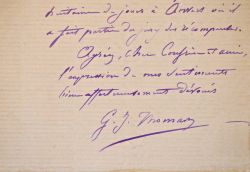 huitaine de jours à Anvers où il
a fait partie du jury des récompenses.
Agréez, cher Confrère et ami,
l'expression de mes sentiments
bien affectueusement dévoués
G. J.